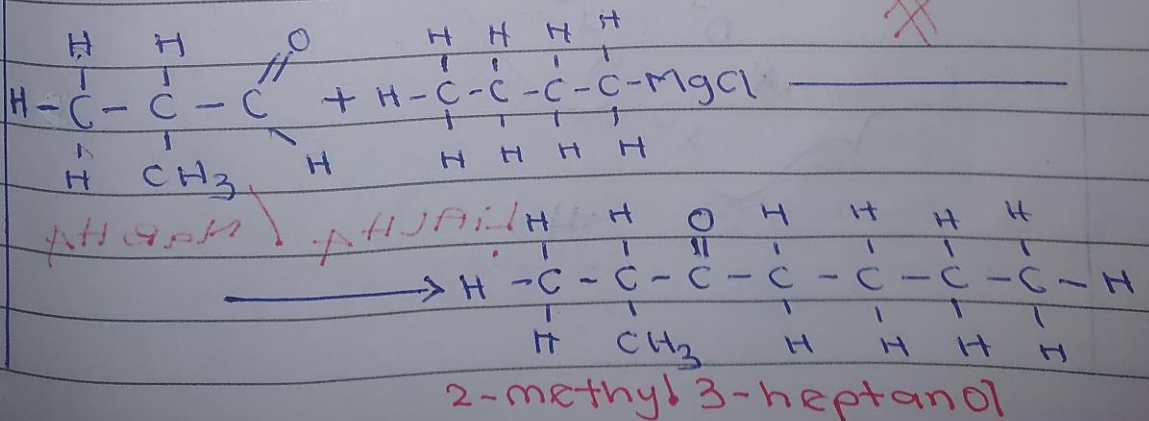 H H O H H H H
H-C-C-C + H-C-C-C-C-MgCl
H CH3 H H H H H
H H O H H H H
H-C-C-C-C-C-C-C-H
H CH3 H H H H
2-methyl 3-heptanol